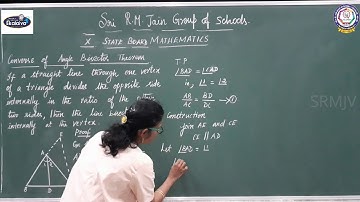 Ekalaiva
Sri R.M. Jain Group of Schools.
X STATE BOARD MATHEMATICS
Converse of Angle Bisector Theorem
If a straight line through one vertex
of a triangle divides the opposite side
internally in the ratio of the
two sides, then the line
internally at the vertex
Proof
E
A
T P
∠BAD = ∠CAD
∠1 = ∠2
AB/AC = BD/DC → ①
Construction
join AE and CE
CE || AD
Let ∠BAD = ∠1
SRMJV